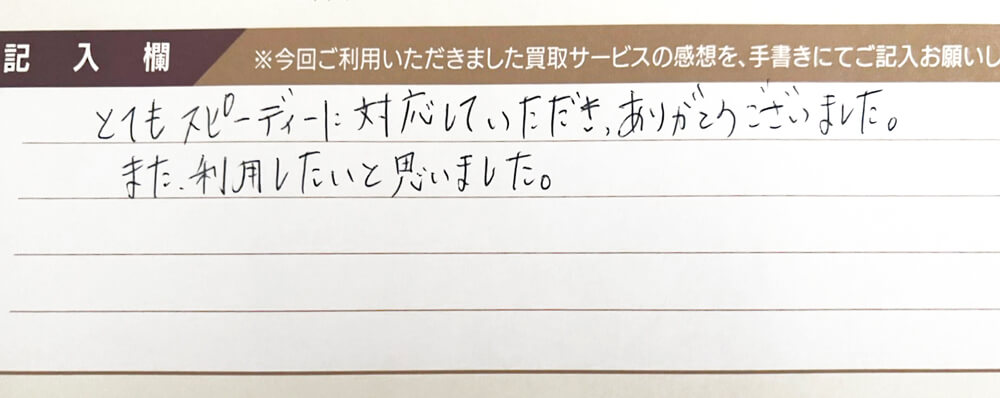 記入欄
※今回ご利用いただきました買取サービスの感想を、手書きにてご記入お願いし
とてもスピーディーに対応していただき、ありがとうございました。
また、利用したいと思いました。